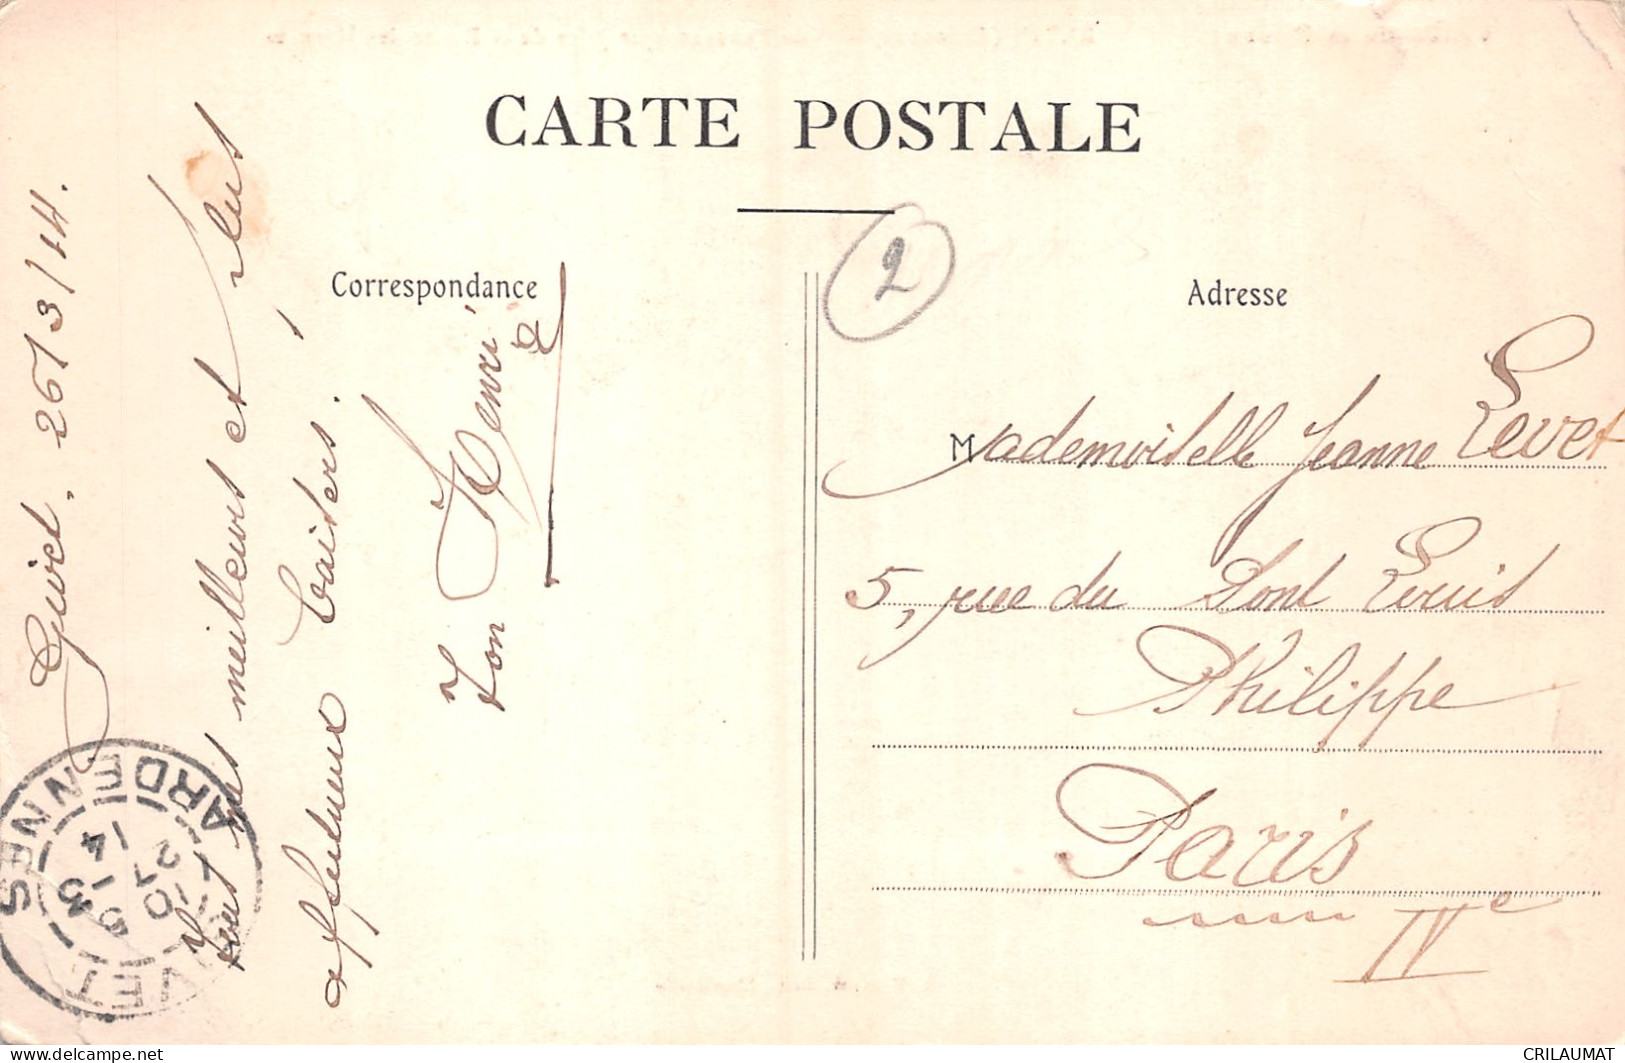 CARTE POSTALE
Correspondance
Adresse
2
Givet. 26/3/14.
meilleurs et plus
affectueux baisers.
Ton Henri
Mademoiselle Jeanne Levet
5, rue du Pont Louis
Philippe
Paris
IVe
GIVET
ARDENNES
10 5
27 - 3
14
CRILAUMAT